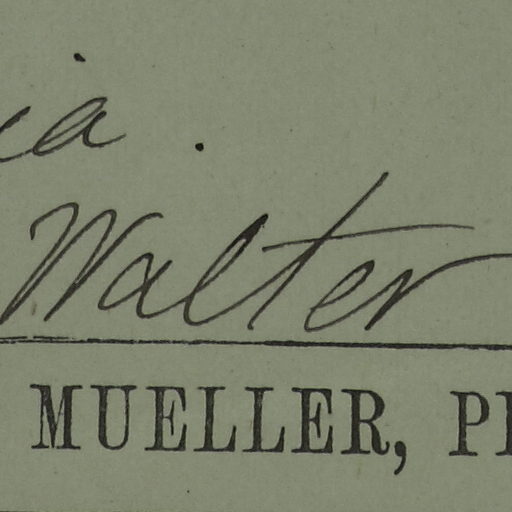 ia.
Walter
MUELLER, P